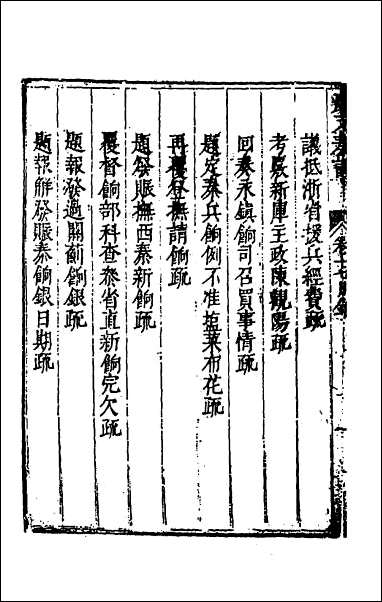 議抵浙省援兵經費疏
考覈新庫主政陳觀陽疏
回奏永鎮餉司召買事情疏
題定秦兵餉例不准塩菜布花疏
再覆秦撫請餉疏
題發賑撫西秦新餉疏
覆督餉部科查叅省直新餉完欠疏
題報發過關薊餉銀疏
題報解發賑秦餉銀日期疏